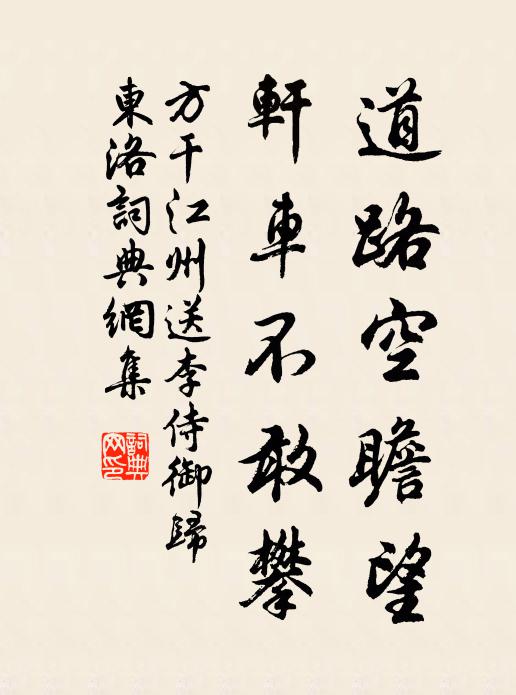 道路空瞻望
軒車不敢攀
方干江州送李侍御歸
東洛詞典網集
詞典
网印